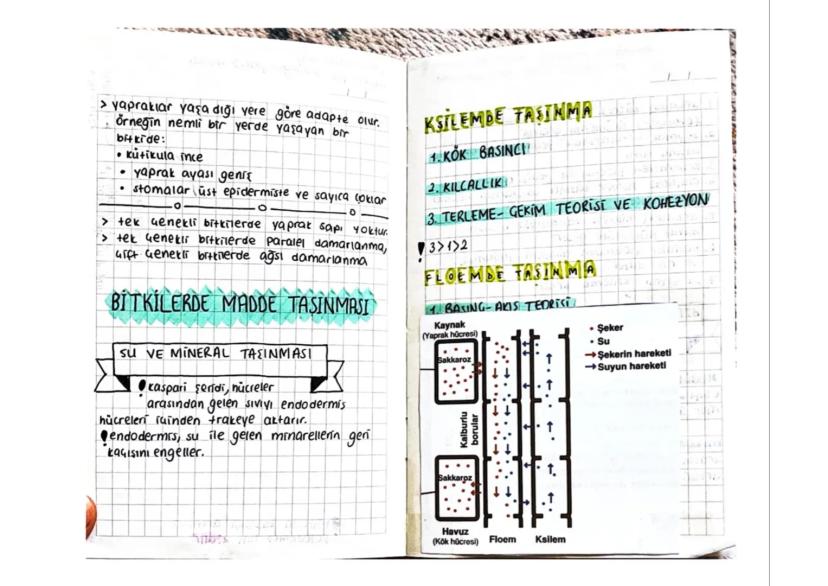 > yapraklar yaşadığı yere göre adapte olur.
örneğin nemli bir yerde yaşayan bir
bitkide:
• kütikula ince
• yaprak ayası geniş
• stomalar üst epidermiste ve sayıca çoklar
> tek çenekli bitkilerde yaprak sapı yoktur.
> tek çenekli bitkilerde paralel damarlanma,
çift çenekli bitkilerde ağsı damarlanma
BİTKİLERDE MADDE TAŞINMASI
SU VE MİNERAL TAŞINMASI
! kaspari şeridi, hücreler
arasından gelen sıvıyı endodermis
hücreleri içinden trakeye aktarır.
! endodermis, su ile gelen minarellerin geri
kaçışını engeller.
KSİLEMDE TAŞINMA
1. KÖK BASINCI
2. KILCALLIK
3. TERLEME- ÇEKİM TEORİSİ VE KOHEZYON
! 3>1>2
FLOEMDE TAŞINMA
1. BASINÇ- AKIŞ TEORİSİ
Kaynak
(Yaprak hücresi)
Sakkaroz
Kalburlu
borular
Sakkaroz
Havuz
(Kök hücresi)
Floem
Ksilem
• Şeker
• Su
→ Şekerin hareketi
→ Suyun hareketi